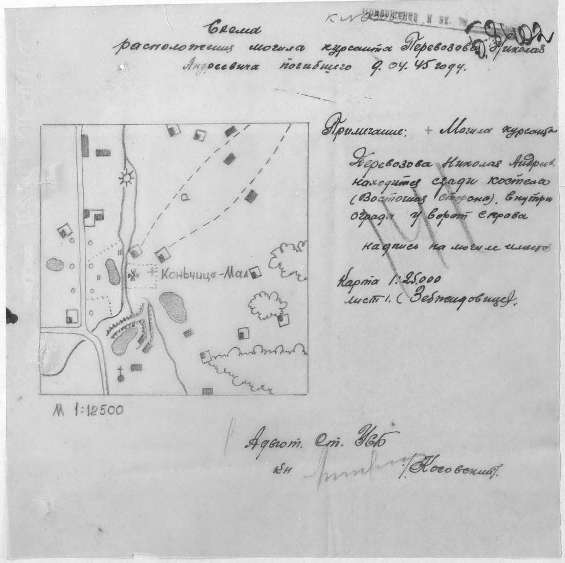 к №
Схема
расположения могила курсанта Перевозова Николая
Андреевича погибшего 9.04.45 году.
Примечание: + Могила курсанта
Перевозова Николая Андрея
находится сзади костела
(Восточная сторона), внутри
ограда у ворот справа
надпись на могиле
Карта 1:25.000
лист 1.
Коньчице-Мал
М 1:12500
Адъют. Ст. УСБ
/Косовский/.